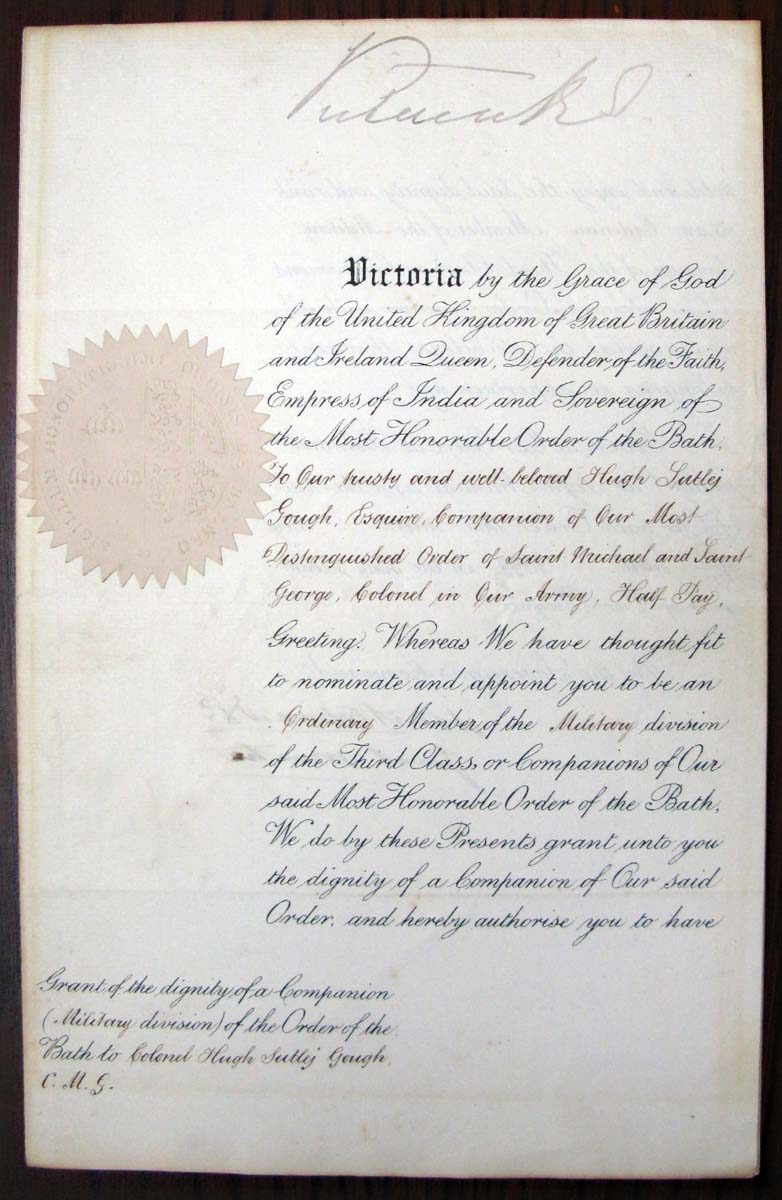 Victoria R I
Victoria by the Grace of God
of the United Kingdom of Great Britain
and Ireland Queen, Defender of the Faith,
Empress of India and Sovereign of
the Most Honorable Order of the Bath,
To Our trusty and well-beloved Hugh Sutlej
Gough, Esquire, Companion of Our Most
Distinguished Order of Saint Michael and Saint
George, Colonel in Our Army, Half Pay,
Greeting. Whereas We have thought fit
to nominate and appoint you to be an
Ordinary Member of the Military division
of the Third Class, or Companions of Our
said Most Honorable Order of the Bath,
We do by these Presents grant unto you
the dignity of a Companion of Our said
Order, and hereby authorise you to have
Grant of the dignity of a Companion
(Military division) of the Order of the
Bath to Colonel Hugh Sutlej Gough,
C. M. G.